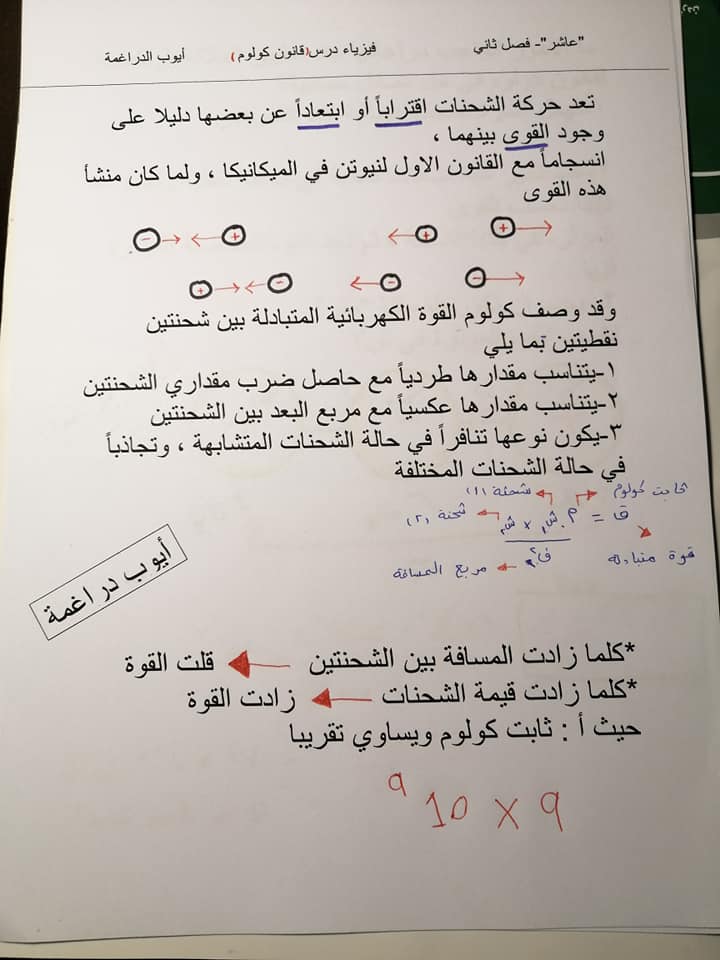 "عاشر"- فصل ثاني فيزياء درس(قانون كولوم) أيوب الدراغمة
تعد حركة الشحنات اقتراباً أو ابتعاداً عن بعضها دليلا على
وجود القوى بينهما ،
انسجاماً مع القانون الاول لنيوتن في الميكانيكا ، ولما كان منشأ
هذه القوى
- + + +
+ - - -
وقد وصف كولوم القوة الكهربائية المتبادلة بين شحنتين
نقطيتين بما يلي
١-يتناسب مقدارها طردياً مع حاصل ضرب مقداري الشحنتين
٢-يتناسب مقدارها عكسياً مع مربع البعد بين الشحنتين
٣-يكون نوعها تنافراً في حالة الشحنات المتشابهة ، وتجاذباً
في حالة الشحنات المختلفة
ثابت كولوم شحنة (١)
ق = م. ش١ × ش٢ شحنة (٢)
ف٢
قوة متبادلة مربع المسافة
أيوب دراغمة
*كلما زادت المسافة بين الشحنتين قلت القوة
*كلما زادت قيمة الشحنات زادت القوة
حيث أ : ثابت كولوم ويساوي تقريبا
9 × 10⁹